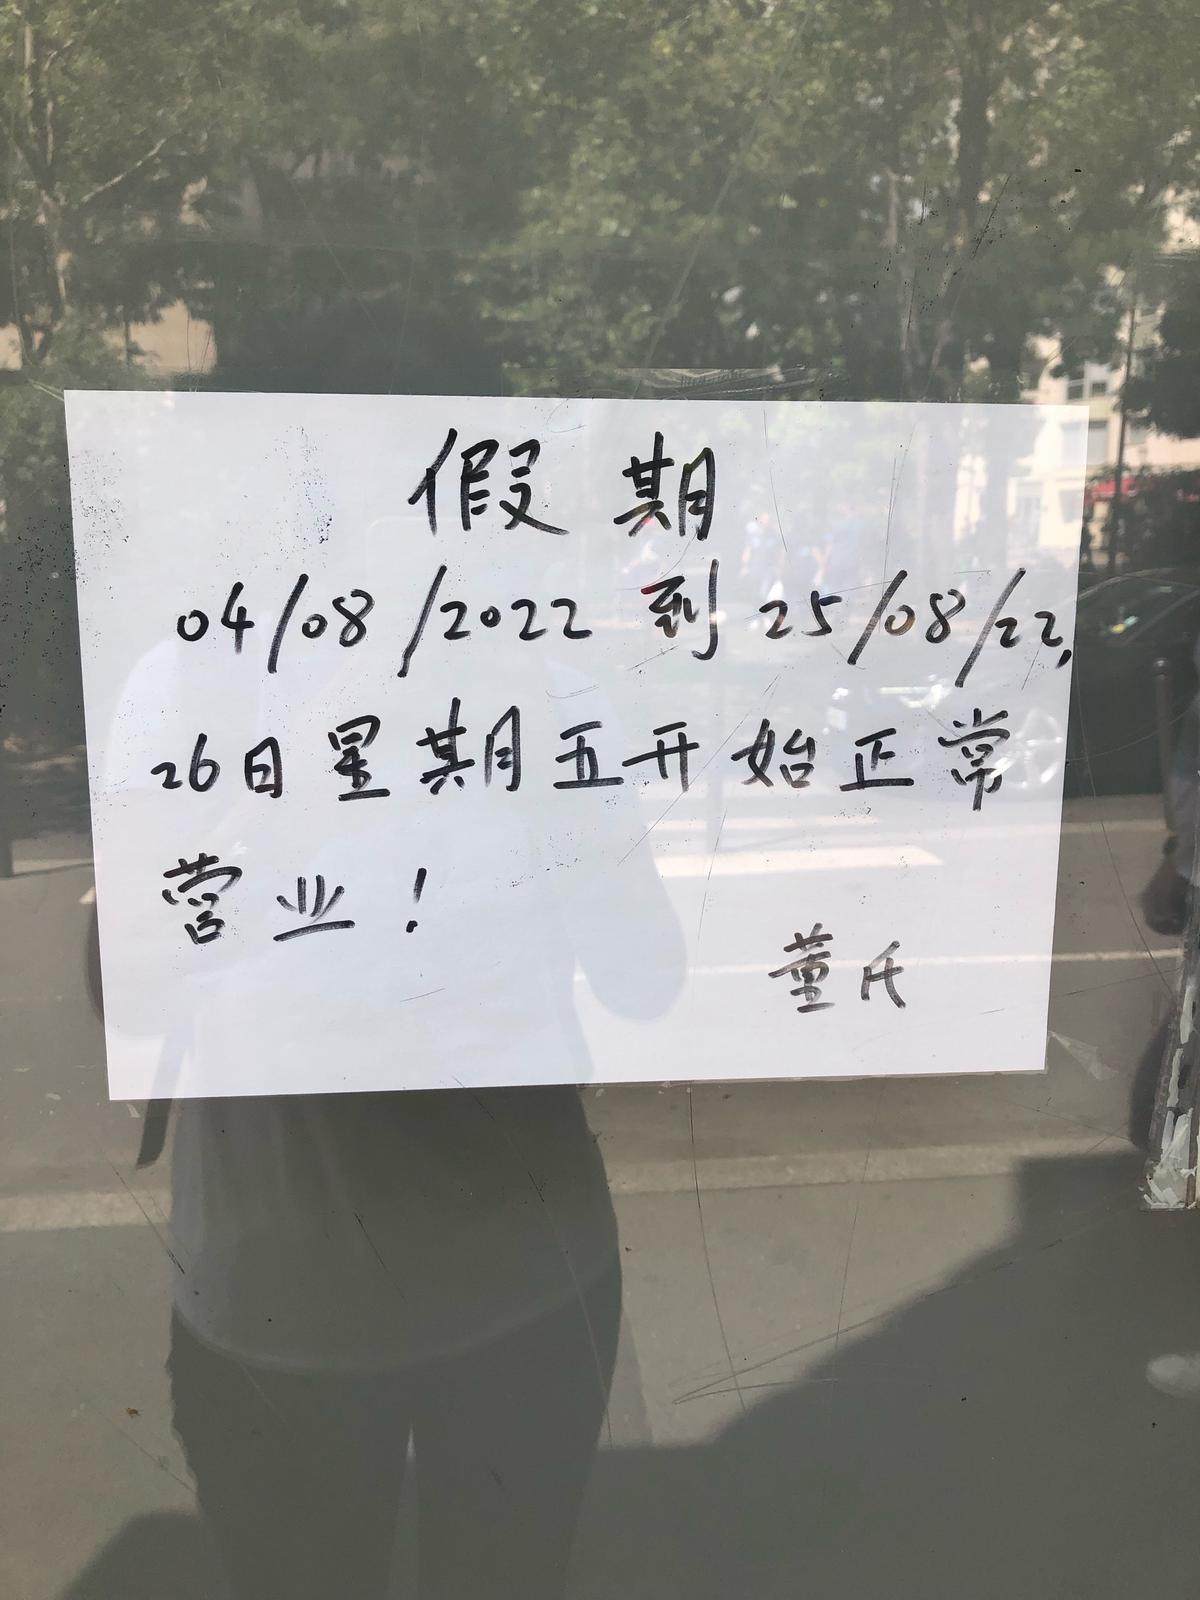 假期
04/08/2022 到 25/08/22,
26日星期五开始正常
营业!
董氏